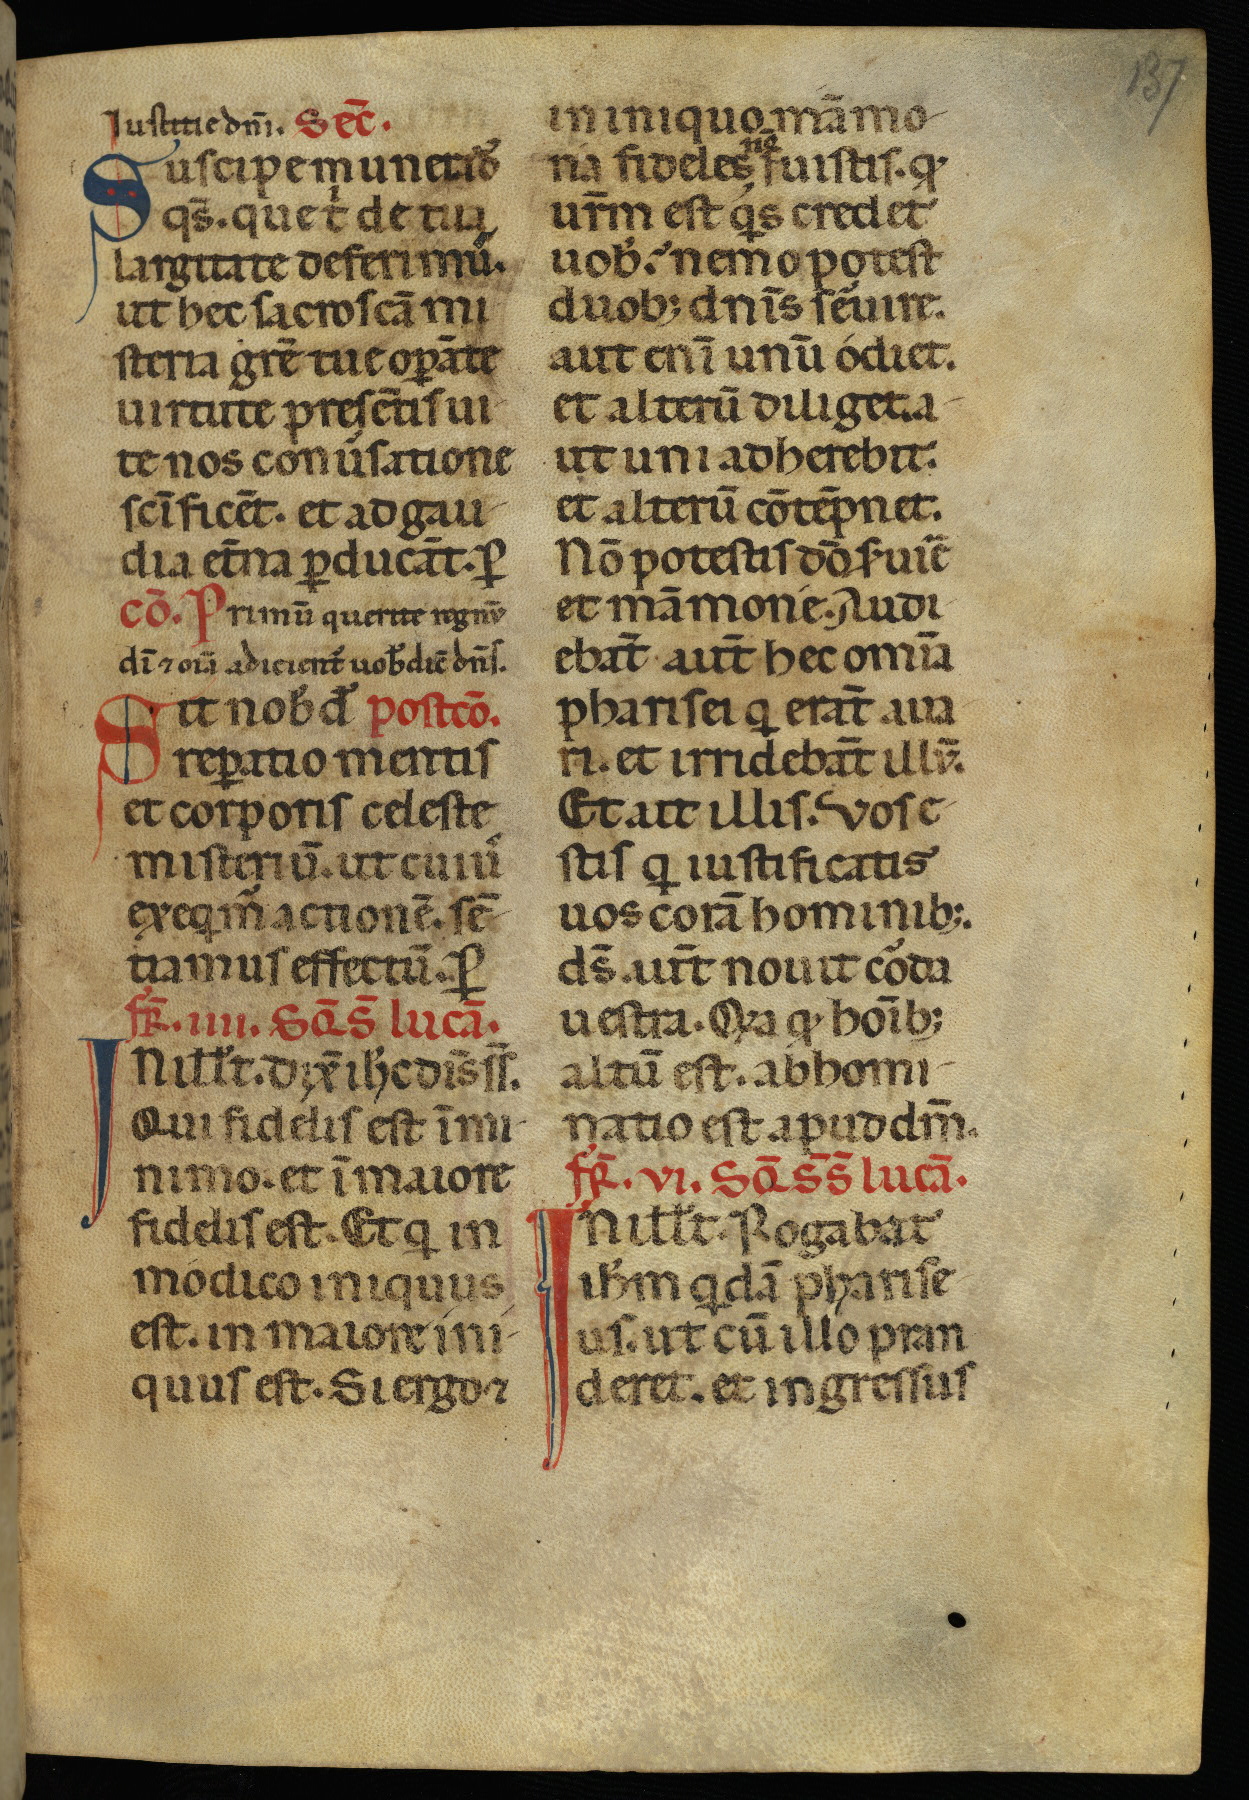 137
iustitie dnī. Sēc.
Suscipe munera dn̄e
qs̄. que t̄ de tua
largitate deferimꝰ.
ut hec sacroscā mi
steria gr̄e tue oꝑāte
uirtute presēntis ui
te nos conūsatione
scīficēt. et ad gau
dia et̄na ꝑducāt. ꝑ
cō. Primū querite regnū
dī ⁊ oīa adicient̄ uob̄ dic̄ dn̄s.
Sit nob̄ dn̄e postcō.
reꝑatio mentis
et corporis celeste
misteriū. ut cuiꝰ
exeqim̄ actionē. sē
tiamus effectū. ꝑ
fr̄. iiii. Sc̄d̄s lucā.
INill̄t. dix̄ ih̄c dīs s̄s̄.
Qui fidelis est ī mi
nimo. et ī maiore
fidelis est. Et q in
modico iniquus
est. in maiore ini
quus est. Si ergo ⁊
in iniquo māmo
na fideles nō fuistis. qͥ
ur̄m est q̄s credet
uob̄. nemo potest
duob; dnīs seruire.
aut enī unū odiet.
et alterū diliget. a
ut uni adherebit.
et alterū cōtēpnet.
Nō potestis dō s̄uir̄e
et māmone. Audi
ebāt aut̄ hec omīa
pharisei q erāt aua
ri. et irridebāt illū.
Et ait illis. Vos e
stis q iustificatis
uos corā hominib;.
ds̄. aut̄ nouit cōda
uestra. Qia qͥ hoīb;
altū est. abhomi
natio est apud dm̄.
fr̄. vi. Sc̄d̄s s̄ lucā.
INill̄t. Rogabat
ih̄m qdā pharise
us. ut cū illo pran
deret. et ingressus